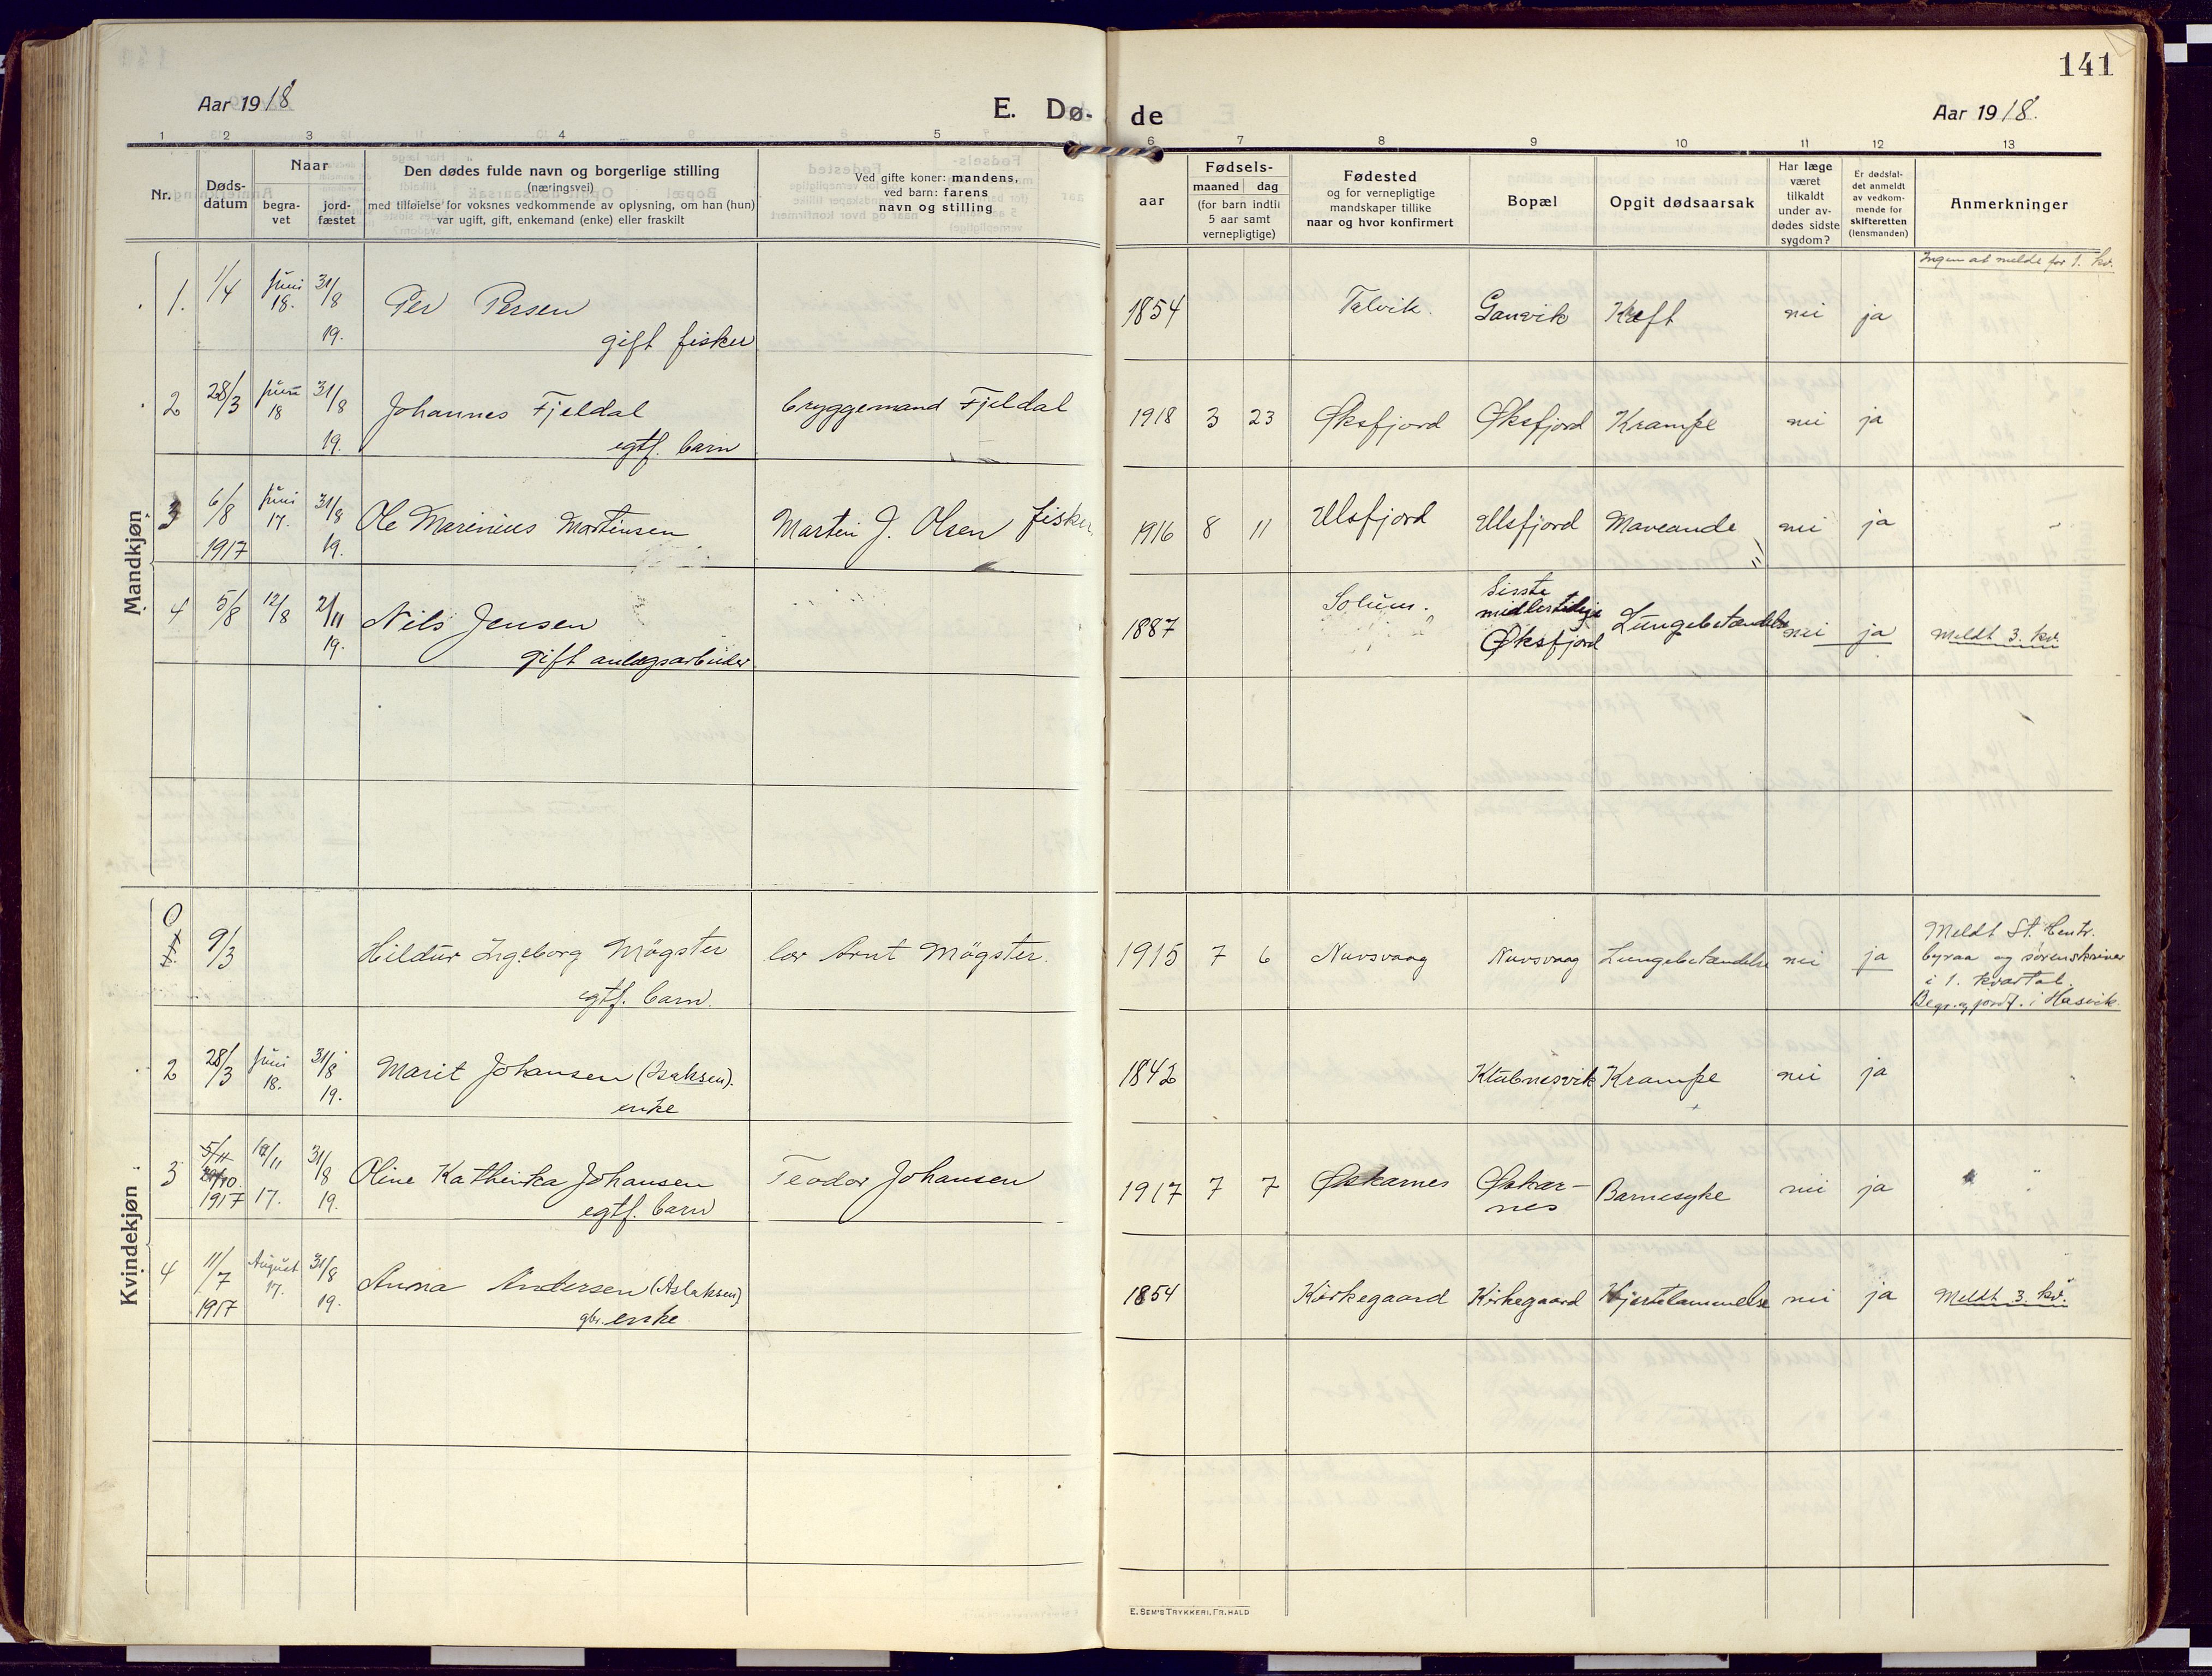 141
Aar 1918
E. Dø-
de
Aar 1918.
1 2 3 4 5 6 7 8 9 10 11 12 13
Nr.
Døds-
datum
Naar
begra-
vet
jord-
fæstet
Den dødes fulde navn og borgerlige stilling
(næringsvei)
med tilføielse for voksnes vedkommende av oplysning, om han (hun)
var ugift, gift, enkemand (enke) eller fraskilt
Ved gifte koner: mandens,
ved barn: farens
navn og stilling
aar
Fødsels-
maaned dag
(for barn indtil
5 aar samt
vernepligtige)
Fødested
og for vernepligtige
mandskaper tillike
naar og hvor konfirmert
Bopæl
Opgit dødsaarsak
Har læge
været
tilkaldt
under av-
dødes sidste
sygdom?
Er dødsfal-
det anmeldt
av vedkom-
mende for
skifteretten
(lensmanden)
Anmerkninger
Mandkjøn
Ingen at melde for 1. kv.
1. 1/4 Juni 18. 31/8 19. Per Persen 1854 Talvik. Ganvik Kræft nei ja
gift fisker
2 28/3 Juni 18 31/8 19. Johannes Fjeldal bryggemand Fjeldal 1918 3 23 Øksfjord Øksfjord Krampe nei ja
egtf. barn
3 6/8 1917 Juni 17. 31/8 19. Ole Marinius Mortensen Martin J. Olsen fisker 1916 8 11 Ulsfjord Ulsfjord Maveande nei ja "
4 5/8 12/8 2/11 19. Nils Jensen 1887 Solum. Sisste
midlertidige
Øksfjord Lungebetændelse nei ja Meldt 3. kv.
gift anlægsarbeider
Kvindekjøn
0 1. 9/3 Hildur Ingeborg Mögster lær Arnt Mögster. 1915 7 6 Nuvsvaag Nuvsvaag Lungebetændelse nei ja Meldt St. Centr.
byraa og sorenskriver
i 1. kvartal.
Begr. og jordf. i Hasvik.
egtf. barn.
2 28/3 Juni 18. 31/8 19. Marit Johansen (Isaksen). 1842 Klubnesvik Krampe nei ja
enke
3 5/11 1917 12/11 17. 31/8 19. Oline Kathinka Johansen Teodor Johansen 1917 7 7 Øskarnes Øskar-
nes Barnesyke nei ja "
egtf. barn
4 11/7 1917 August 17. 31/8 19. Anna Andersen (Aslaksen) 1854 Kirkegaard Kirkegaard Hjertelammelse nei ja Meldt 3. kv.
gbr. enke
E. SEM'S TRYKKERI, FR.HALD